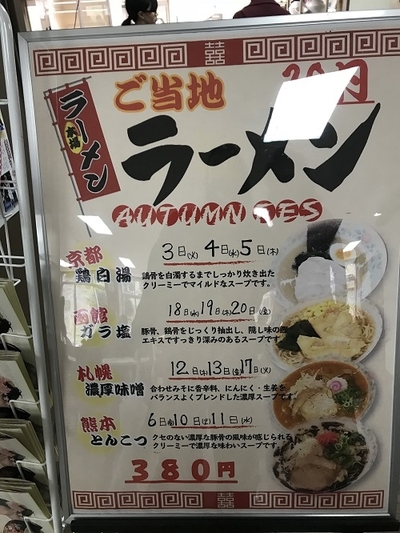 ラーメン
本場
ご当地
10月
ラーメン
AUTUMN FES
京都
鶏白湯
3日(火) 4日(水) 5日(木)
鶏骨を白濁するまでしっかり炊き出た
クリーミーでマイルドなスープです。
函館
ガラ塩
18日(水) 19日(木) 20日(金)
豚骨、鶏骨をじっくり抽出し、隠し味の
エキスですっきり深みのあるスープです
札幌
濃厚味噌
12日(木) 13日(金) 17日(火)
合わせみそに香辛料、にんにく・生姜を
バランスよくブレンドした濃厚スープです。
熊本
とんこつ
6日(金) 10日(火) 11日(水)
クセのない濃厚な豚骨の風味が感じられる
クリーミーで濃厚な味わいスープです。
380円